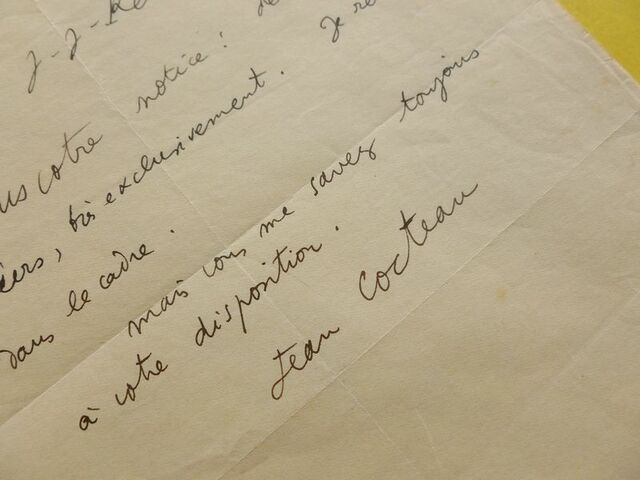 J-J-
notice : Je re
votre
très exclusivement.
dans le cadre.
mais vous me savez toujours
à votre disposition.
Jean Cocteau